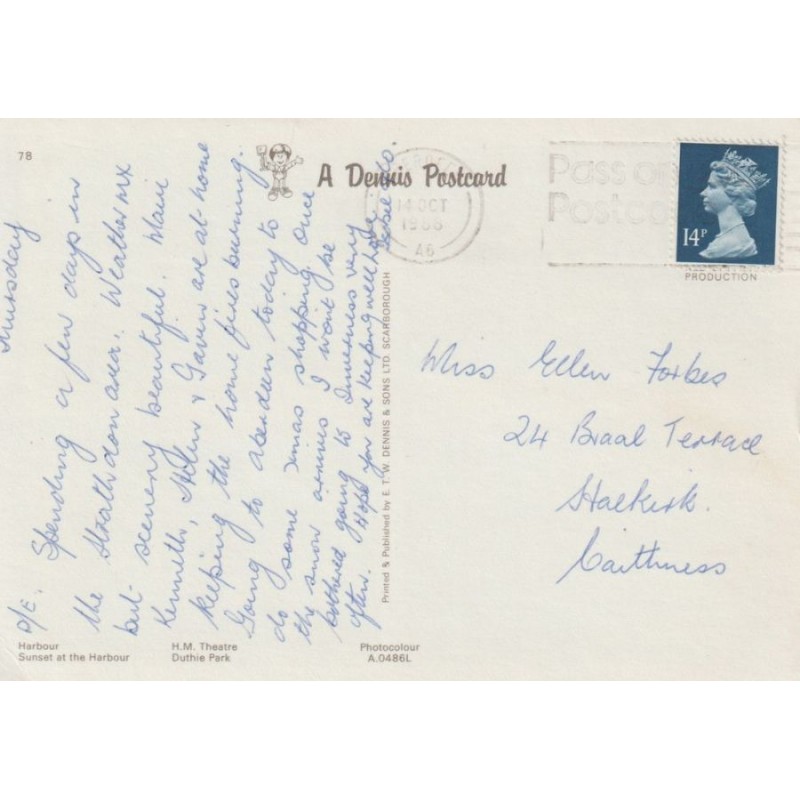 78
A Dennis Postcard
14 OCT
1988
A6
Pass on
Postco
14P
PRODUCTION
Thursday
D/E. Spending a few days in
the Strathdon area. Weather mx
but scenery beautiful. Mairi
Kenneth, Helen & Gavin are at home
keeping the home fires burning.
Going to Aberdeen today to
do some Xmas shopping. Once
the snow arrives I won't be
bothered going to Inverness very
often. Hope you are keeping well.
Miss Ellen Forbes
24 Braal Terrace
Halkirk.
Caithness
Printed & Published by E. T. W. DENNIS & SONS LTD SCARBOROUGH
Harbour
Sunset at the Harbour
H.M. Theatre
Duthie Park
Photocolour
A.0486L